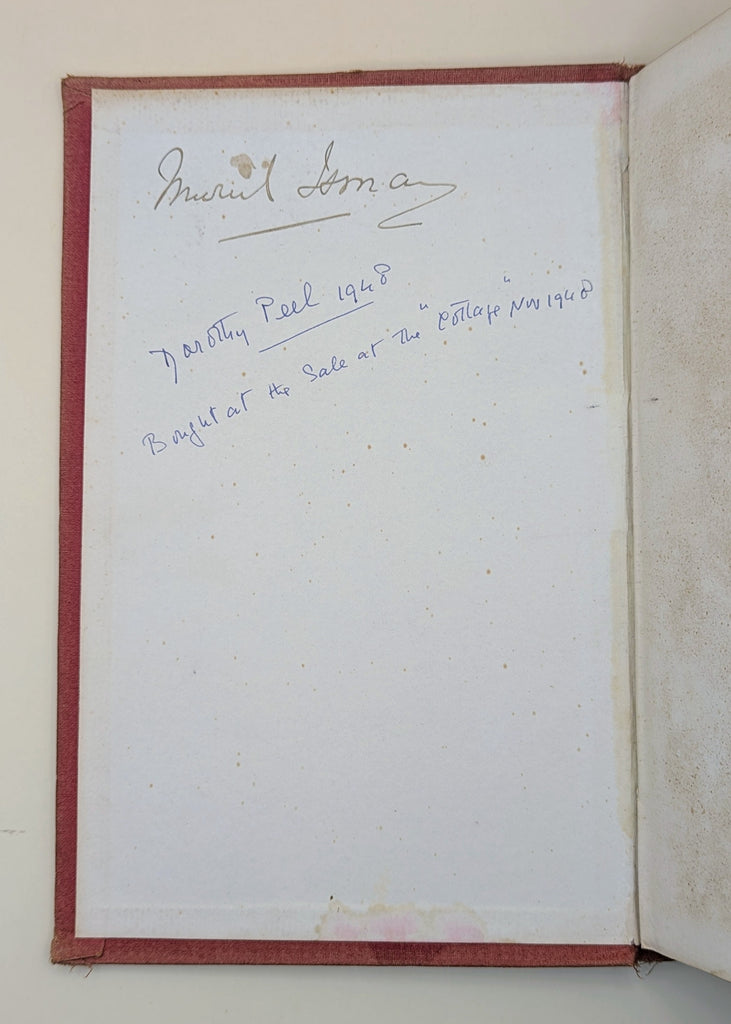 Muriel Ismay
Dorothy Peel 1948
Bought at the Sale at The "Cottage" Nov 1948